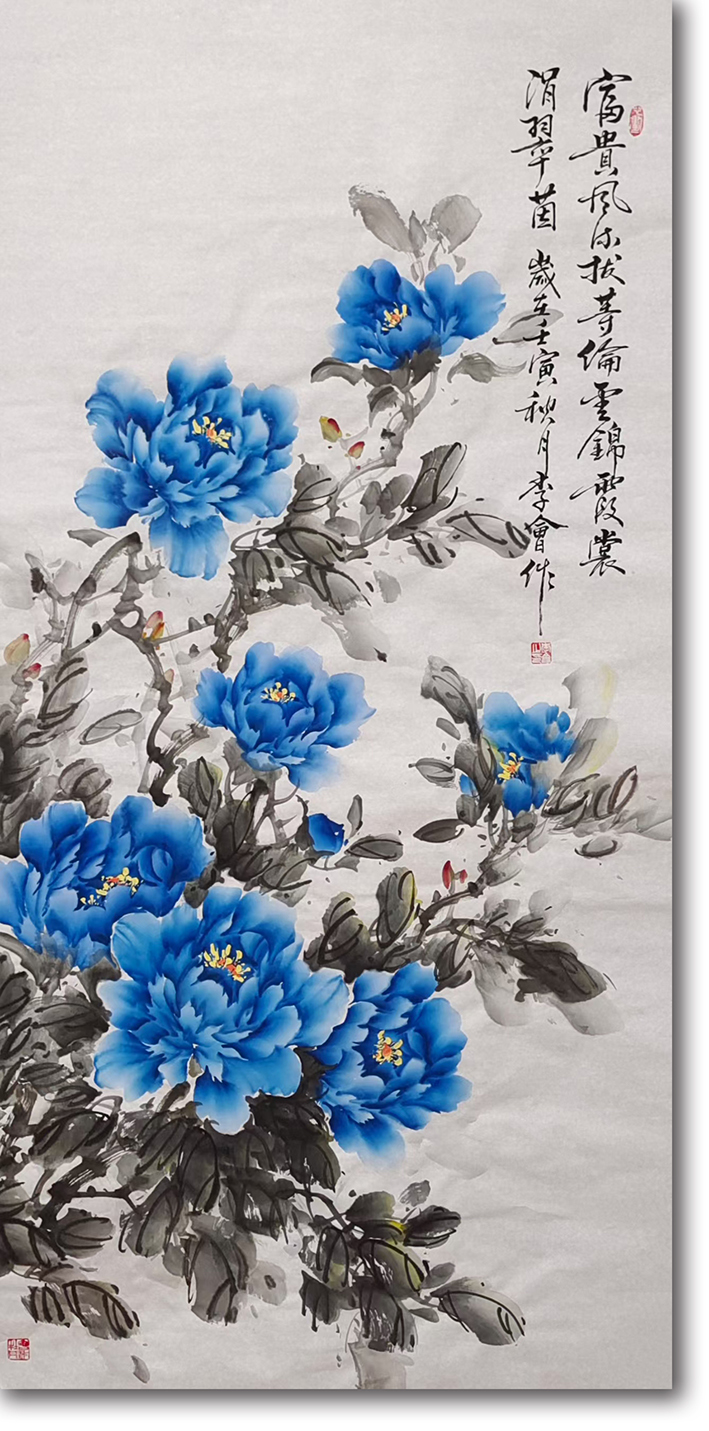 富貴風流拔等倫雲錦霞裳
涓翠茵 歲在壬寅秋月李會作